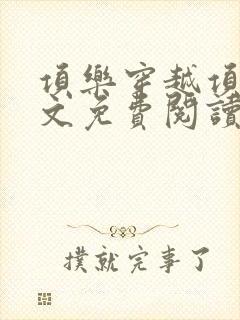 頂樂穿越頂
文免費閱讀
撲就完事了